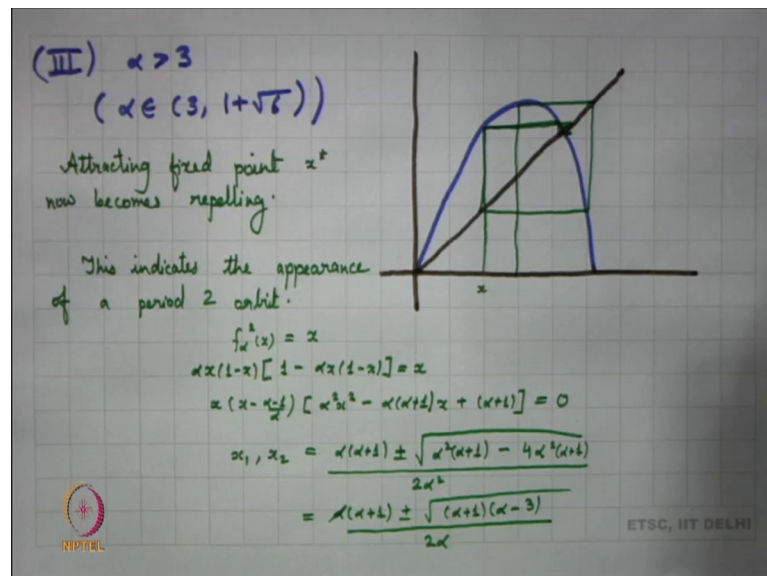 (III) α > 3
(α ∈ (3, 1+√6))
Attracting fixed point x*
now becomes repelling.
This indicates the appearance
of a period 2 orbit.
x
f_α²(x) = x
αx(1-x)[1 - αx(1-x)] = x
x(x - (α-1)/α)[α²x² - α(α+1)x + (α+1)] = 0
x₁, x₂ = (α(α+1) ± √(α²(α+1) - 4α²(α+1)))/2α²
= (α̸(α+1) ± √((α+1)(α-3)))/2α
ETSC, IIT DELHI
NPTEL